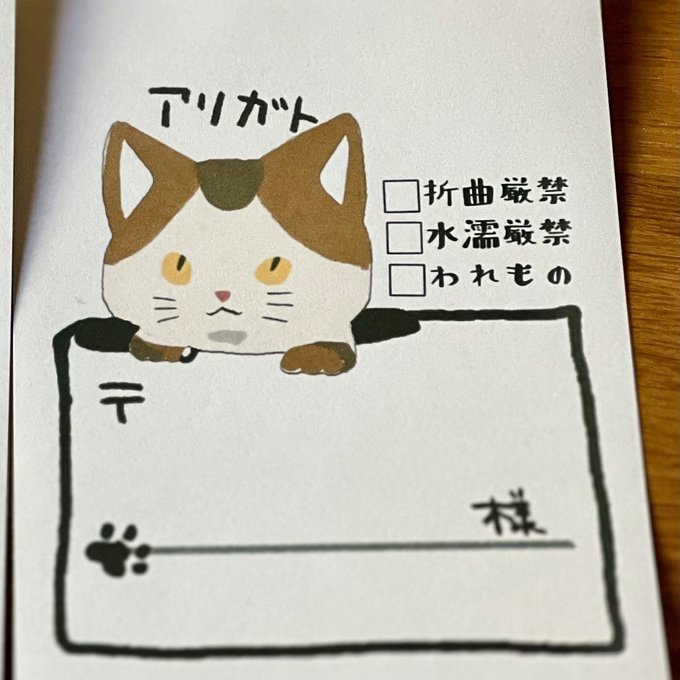 アリガト
折曲厳禁
水濡厳禁
われもの
〒
様